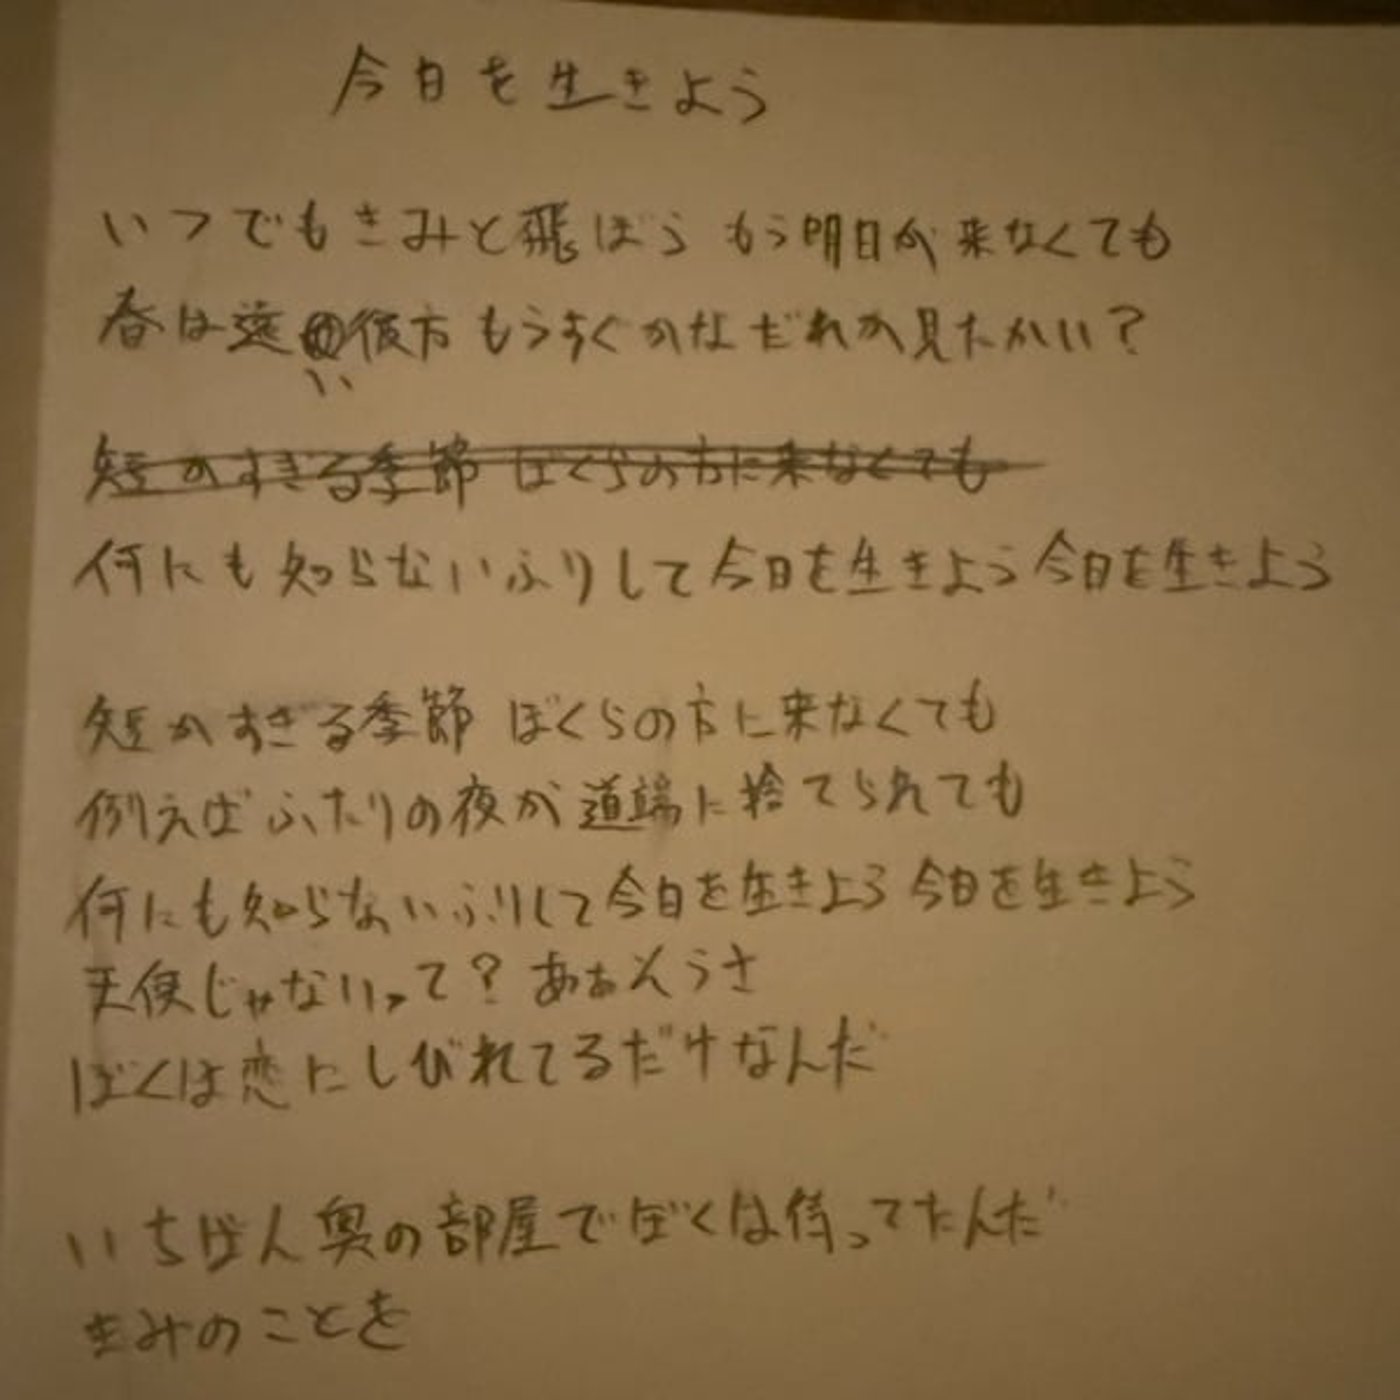 今日を生きよう
いつでもきみと飛ぼう もう明日が来なくても
春は遠い彼方 もうすぐかな だれか見たかい？
短かすぎる季節 ぼくらの方に来なくても
何にも知らないふりして今日を生きよう 今日を生きよう
短かすぎる季節 ぼくらの方に来なくても
例えばふたりの夜が道端に捨てられても
何にも知らないふりして今日を生きよう 今日を生きよう
天使じゃないって？ あぁそうさ
ぼくは恋にしびれてるだけなんだ
いちばん奥の部屋でぼくは待ってたんだ
きみのことを